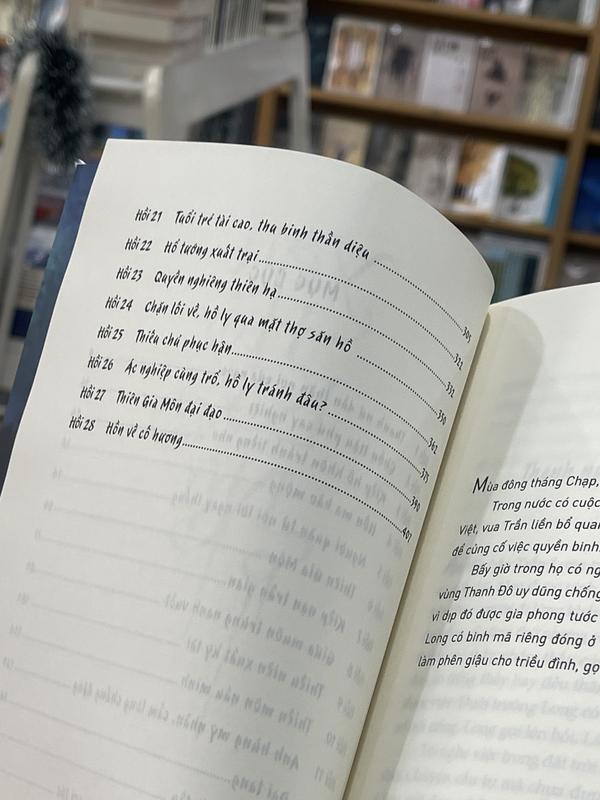 Hồi 21 Tuổi trẻ tài cao, thu binh thần diệu ..... 305
Hồi 22 Hổ tướng xuất trại ..... 322
Hồi 23 Quyền nghiêng thiên hạ ..... 332
Hồi 24 Chặn lối về, hồ ly qua mặt thợ săn hổ ..... 350
Hồi 25 Thiếu chủ phục hận ..... 362
Hồi 26 Ác nghiệp cùng trổ, hồ ly tránh đâu? ..... 375
Hồi 27 Thiên Gia Môn đại đạo ..... 390
Hồi 28 Hồn về cố hương ..... 401
Mùa đông tháng Chạp,
Trong nước có cuộc
Việt, vua Trần liền bổ quan
để củng cố việc quyền binh.
Bấy giờ trong họ có ng
vùng Thanh Đô uy dũng chống
vì dịp đó được gia phong tước
Long có binh mã riêng đóng ở
làm phên giậu cho triều đình, gọ